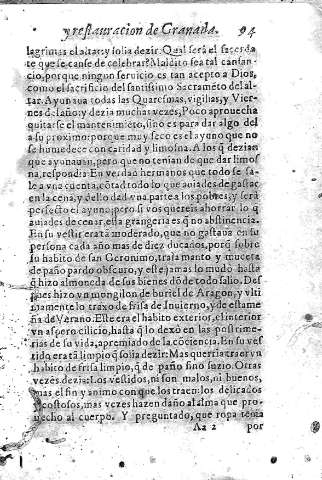 y restauracion de Granada. 94
lagrimas el altar: y solia dezir: Qual será el sacerdo
te que se canse de celebrar? Maldito sea tal cansan-
cio, porque ningun seruicio es tan acepto a Dios,
como el sacrificio del santissimo Sacramẽto del al-
tar. Ayunaua todas las Quaresmas, vigilias, y Vier-
nes del año: y dezia muchas vezes, Poco aprouecha
quitarse el mantenimiẽto, sino es para dar algo del
a su proximo: porque muy seco es el ayuno que no
se humedece con caridad y limosna. A los q̃ dezian
que ayunauan, pero que no tenian de que dar limos
na, respondia: En verdad hermanos que todo se sa-
le a vna cuenta, cõtad todo lo que auiades de gastar
en la cena, y dello dad vna parte a los pobres, y será
perfecto el ayuno, pero si vos quereis ahorrar lo q̃
auiades de cenar, esta grangeria es q̃ no abstinencia.
En su vestir era tã moderado, que no gastaua en su
persona cada año mas de diez ducados, porq̃ sobre
su habito de san Geronimo, traîa manto y muceta
de paño pardo obscuro, y este jamas lo mudò hasta
q̃ hizo almoneda de sus bienes dõde todo salio. Des
pues hizo vn mongilon de buriel de Aragon, y vlti
mamente lo traxo de frisa de Inuierno, y de estame
ña de Verano. Este era el habito exterior, el interior
vn aspero cilicio, hasta q̃ lo dexò en las postrime-
rias de su vida, apremiado de la cõciencia. En su ves
tido era tã limpio q̃ solia dezir: Mas querria traer vn
habito de frisa limpio, q̃ de paño sino suzio. Otras
vezes dezia: Los vestidos, ni son malos, ni buenos,
mas el fin y animo con que los traen: los delicados
y costosos, mas vezes hazen daño al alma que pro-
uecho al cuerpo. Y preguntado, que ropa tenia
Aa 2 por